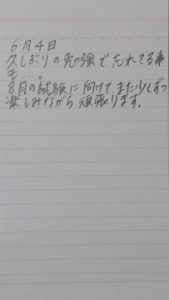 6月4日
久しぶりの勉強で忘れてる事
も....
8月の試験に向けてまた少しずつ
楽しみながら頑張ります.